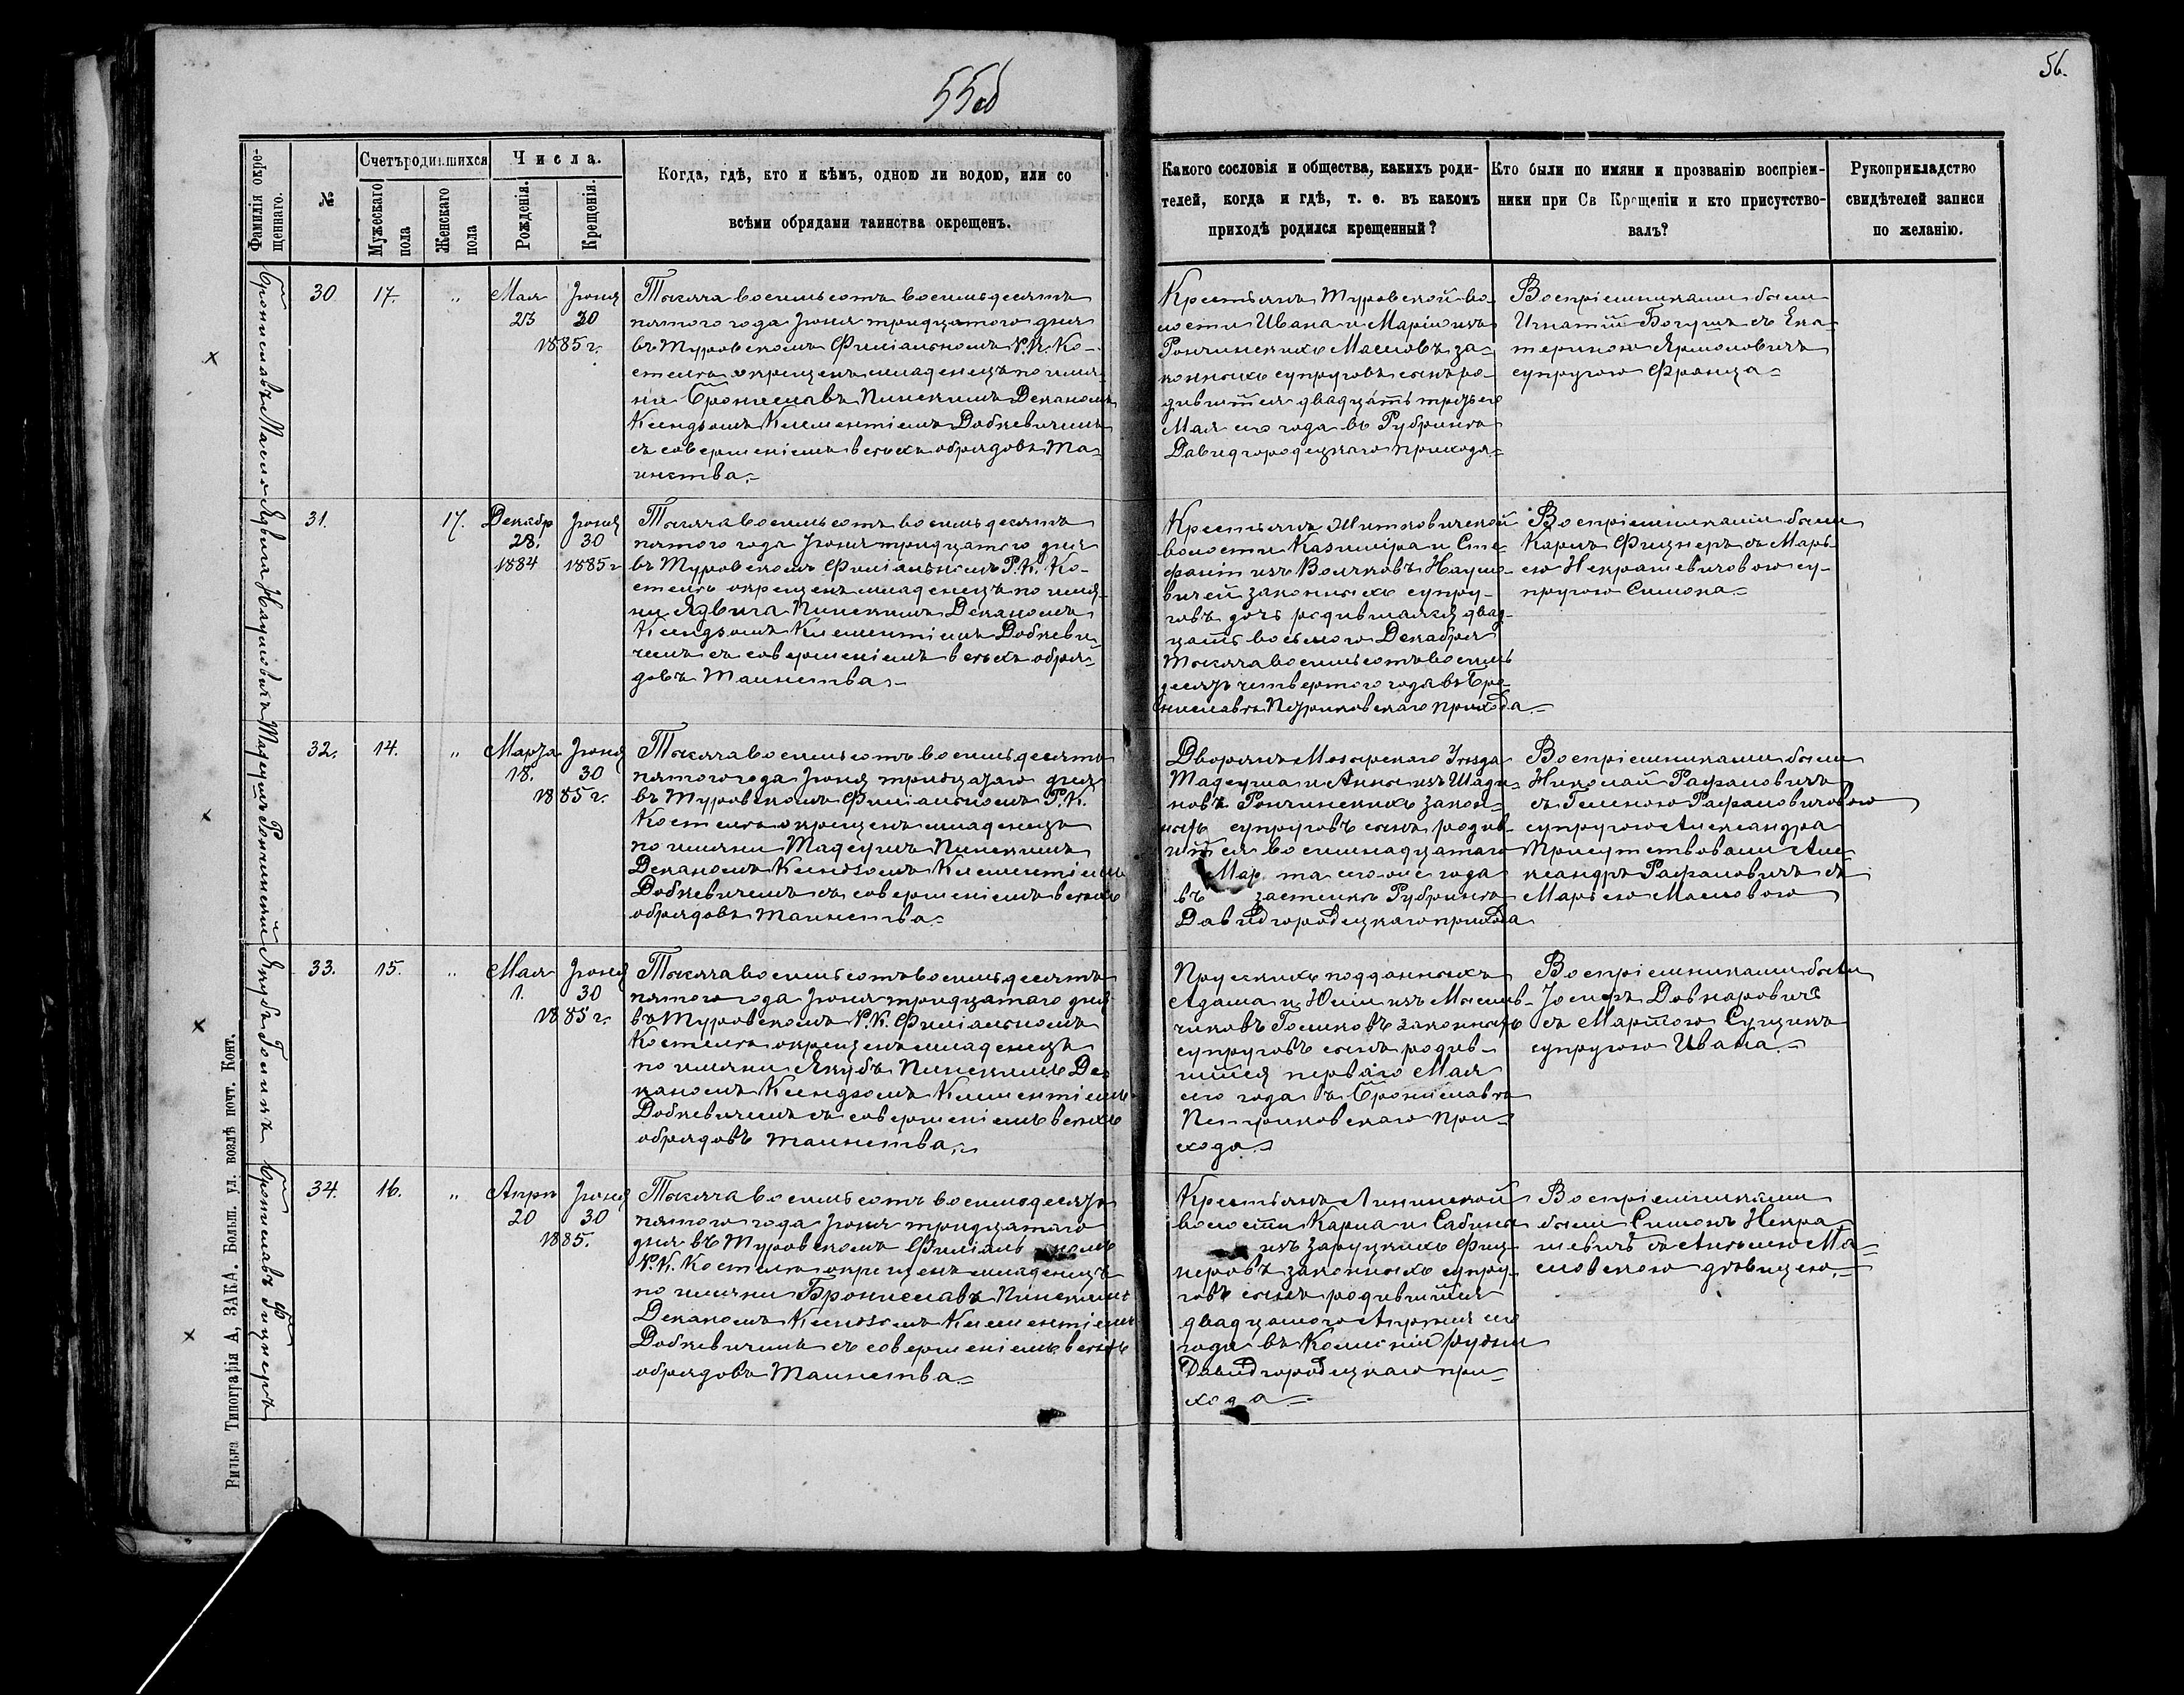 55об
56.
Фамилія окре-
щеннаго.
№
Счетъ родившихся
Мужескаго
пола
Женскаго
пола
Числа.
Рожденія.
Крещенія.
Когда, гдѣ, кто и кѣмъ, одною ли водою, или со
всѣми обрядами таинства окрещенъ.
Какого сословія и общества, какихъ роди-
телей, когда и гдѣ, т. е. въ какомъ
приходѣ родился крещенный?
Кто были по имяни и прозванію воспріем-
ники при Св Крещеніи и кто присутство-
валъ?
Рукоприкладство
свидѣтелей записи
по желанію.
Брониславъ
30
17.
"
Мая
23
Іюня
30
1885 г.
Тысяча восемьсотъ восемьдесятъ
пятого года Іюня тридцатого дня
въ Туровскомъ Филіальномъ Р. К. Ко-
стелѣ окрещенъ младенецъ по имя-
ни Брониславъ Пинскимъ Деканомъ
Ксендзомъ Климентіемъ Добкевичемъ
съ совершеніемъ всѣхъ обрядовъ Та-
инства.-
Крестьянъ Туровской во-
лости Ивана и Маріи изъ
Рончинскихъ Масловъ за-
конныхъ супруговъ сынъ ро-
дившійся двадцать третьего
Мая сего года въ Рубринѣ
Давидгородецкаго прихода-
Воспріемниками были
Игнатій Богушъ съ Ека-
териною Ярмоловичъ
супругою Франца-
Ядвига Наумовичъ
31.
17.
Декабр
28.
1884
Іюня
30
1885 г
Тысяча восемьсотъ восемьдесятъ
пятого года Іюня тридцатого дня
въ Туровскомъ Филіальномъ Р. К. Ко-
стелѣ окрещенъ младенецъ по имя-
ни Ядвига Пинскимъ Деканомъ
Ксендзомъ Климентіемъ Добкеви-
чемъ съ совершеніемъ всѣхъ обря-
довъ Таинства.-
Крестьянъ Житковичской
волости Казиміра и Сте-
фаніи изъ Волчковъ Наумо-
вичей законныхъ супру-
говъ дочь родившаяся двад-
цать восьмого Декабря
тысяча восемьсотъ восемь
десятъ четвертого года въ Бро-
ниславѣ Петриковскаго прихода.-
Воспріемниками были
Карлъ Фицнеръ съ Марь-
ею Некрашевичовою су-
пругою Симона.-
Тадеушъ Рончинскій
32.
14.
"
Марта
18.
Іюня
30
1885 г.
Тысяча восемьсотъ восемьдесятъ
пятого года Іюня тридцатаго дня
въ Туровскомъ Филіальномъ Р. К.
Костелѣ окрещенъ младенецъ
по имяни Тадеушъ Пинскимъ
Деканомъ Ксендзомъ Климентіемъ
Добкевичемъ съ совершеніемъ всѣхъ
обрядовъ таинства.-
Дворянъ Мозырскаго Уѣзда
Тадеуша и Анны изъ
Рончинскихъ закон-
ныхъ супруговъ сынъ родив-
шійся восемнадцатаго
Марта сего же года
въ застѣнкѣ Рубринѣ
Давидгородецкаго прихода
Воспріемниками были
Николай Рафаловичъ
съ Геленою Рафаловичовою
супругою Александра
Присутствовали Але-
ксандръ Рафаловичъ съ
Марьею Масловою
Якубъ Голикъ
33.
15.
"
Мая
1.
Іюня
30
1885 г.
Тысяча восемьсотъ восемьдесятъ
пятого года Іюня тридцатаго дня
въ Туровскомъ Р. К. Филіальномъ
Костелѣ окрещенъ младенецъ
по имяни Якубъ Пинскимъ Де-
каномъ Ксендзомъ Климентіемъ
Добкевичемъ съ совершеніемъ всѣхъ
обрядовъ таинства.-
Прусскихъ подданныхъ
Адама и Юліи изъ
законныхъ
супруговъ сынъ родив-
шійся перваго Мая
сего года въ Брониславѣ
Петриковскаго при-
хода.-
Воспріемниками были
Іосифъ Довнаровичъ
съ Маріею
супругою Ивана.-
Брониславъ Фицнеръ
34.
16.
"
Апрл
20
Іюня
30
1885.
Тысяча восемьсотъ восемьдесятъ
пятого года Іюня тридцатаго
дня въ Туровскомъ Филіальномъ
Р. К. Костелѣ окрещенъ младенецъ
по имяни Брониславъ Пинскимъ
Деканомъ Ксендзомъ Климентіемъ
Добкевичемъ съ совершеніемъ всѣхъ
обрядовъ Таинства.-
Крестьянъ Ленинской
волости Карла и Сабины
изъ Заруцкихъ Фиц-
неровъ законныхъ супру-
говъ сынъ родившійся
двадцатого Апрѣля сего
года въ Рудни
Давидгородецкаго при-
хода.-
Воспріемниками
были Симонъ Некра-
шевичъ съ Анѣлею Ма-
словскою дѣвицею.-
Вильна Типографія А, ЗАКА. Больш. ул. возлѣ почт. Конт.